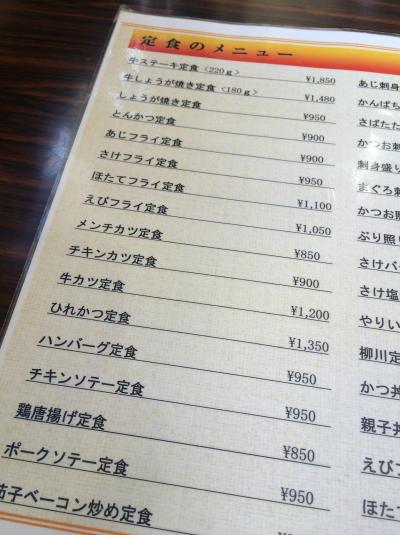 定食のメニュー
牛ステーキ定食〈220g〉 ¥1,850
牛しょうが焼き定食〈180g〉 ¥1,480
しょうが焼き定食 ¥950
とんかつ定食 ¥900
あじフライ定食 ¥900
さけフライ定食 ¥950
ほたてフライ定食 ¥1,100
えびフライ定食 ¥1,050
メンチカツ定食 ¥850
チキンカツ定食 ¥900
牛カツ定食 ¥1,200
ひれかつ定食 ¥1,350
ハンバーグ定食 ¥950
チキンソテー定食 ¥950
鶏唐揚げ定食 ¥850
ポークソテー定食 ¥950
茄子ベーコン炒め定食
あじ刺身
かんぱち
さばたた
かつお刺
刺身盛り
まぐろ刺
かつお照
ぶり照り
さけバ
さけ塩
やりい
柳川定
かつ丼
親子丼
えびフ
ほたて